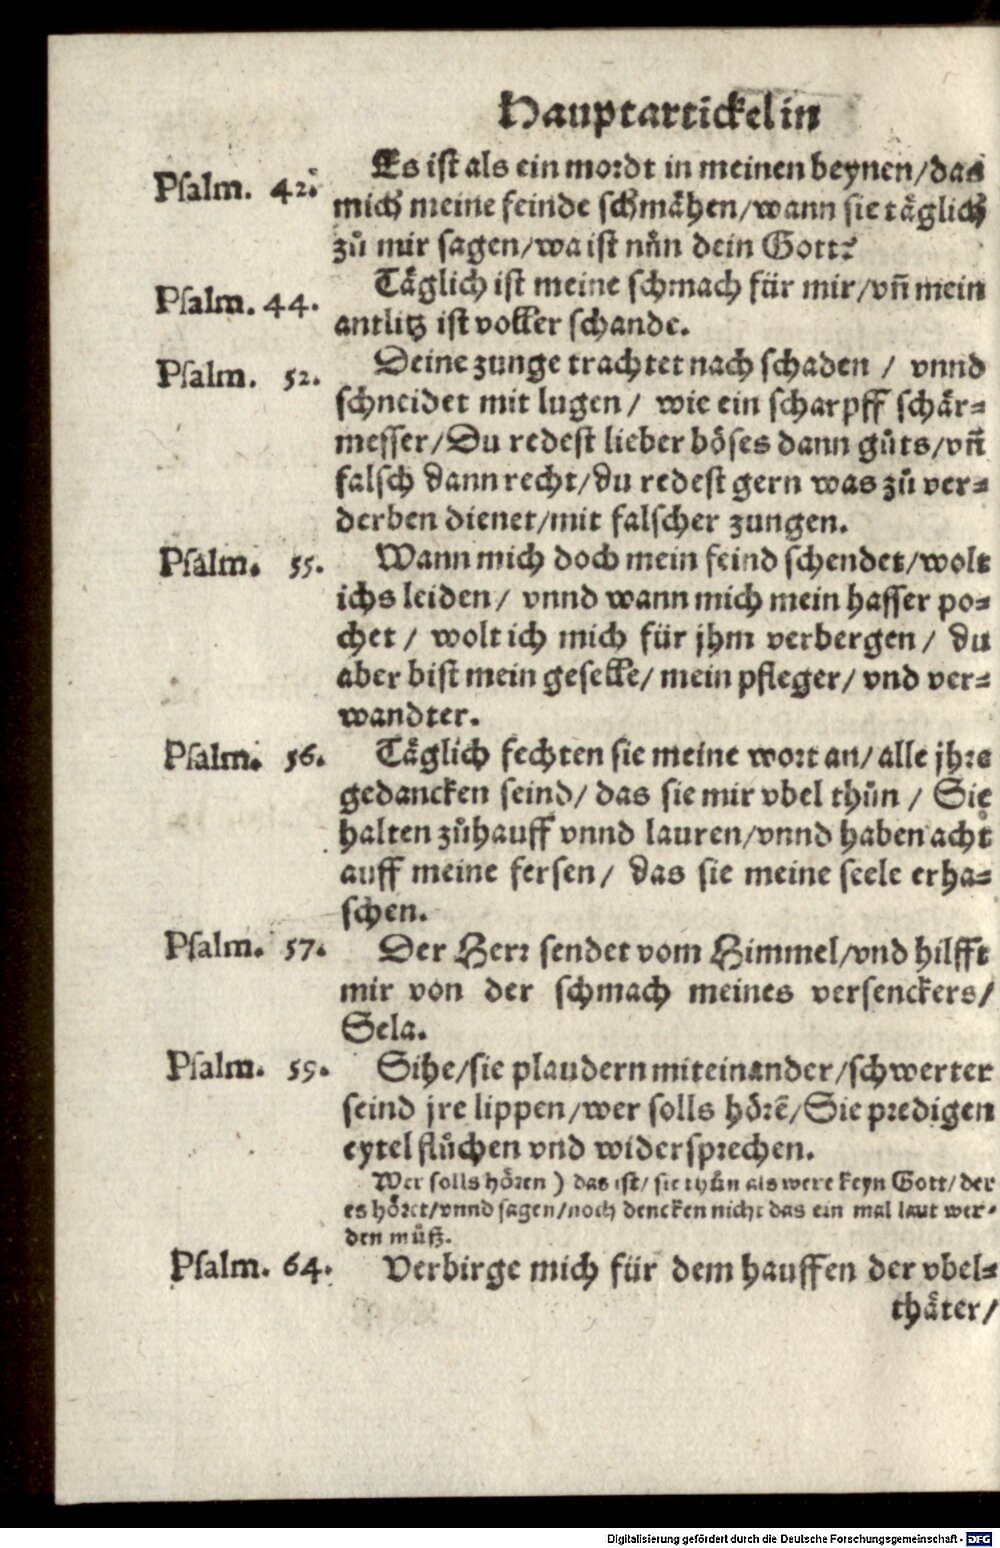 Hauptartickel in
Psalm. 42.
Es ist als ein mordt in meinen beynen/das
mich meine feinde schmähen/wann sie täglich
zů mir sagen/wa ist nůn dein Gott?
Psalm. 44.
Täglich ist meine schmach für mir/vñ mein
antlitz ist voller schande.
Psalm. 52.
Deine zunge trachtet nach schaden / vnnd
schneidet mit lugen / wie ein scharpff schär=
messer/Du redest lieber böses dann gůts/vñ
falsch dann recht/du redest gern was zů ver=
derben dienet/mit falscher zungen.
Psalm. 55.
Wann mich doch mein feind schendet/wolt
ichs leiden / vnnd wann mich mein hasser po=
chet / wolt ich mich für jhm verbergen / du
aber bist mein geselle/ mein pfleger/ vnd ver=
wandter.
Psalm. 56.
Täglich fechten sie meine wort an/ alle jhre
gedancken seind/ das sie mir vbel thůn / Sie
halten zůhauff vnnd lauren/vnnd haben acht
auff meine fersen/ das sie meine seele erha=
schen.
Psalm. 57.
Der Herr sendet vom Himmel/vnd hilfft
mir von der schmach meines versenckers/
Sela.
Psalm. 59.
Sihe/sie plaudern miteinander/schwerter
seind jre lippen/wer solls hörē/Sie predigen
eytel flůchen vnd widersprechen.
Wer solls hören ) das ist/ sie thůn als were keyn Gott/ der
es höret/vnnd sagen/noch dencken nicht das ein mal laut wer=
den můß.
Psalm. 64.
Verbirge mich für dem hauffen der vbel=
thäter/
Digitalisierung gefördert durch die Deutsche Forschungsgemeinschaft - DFG